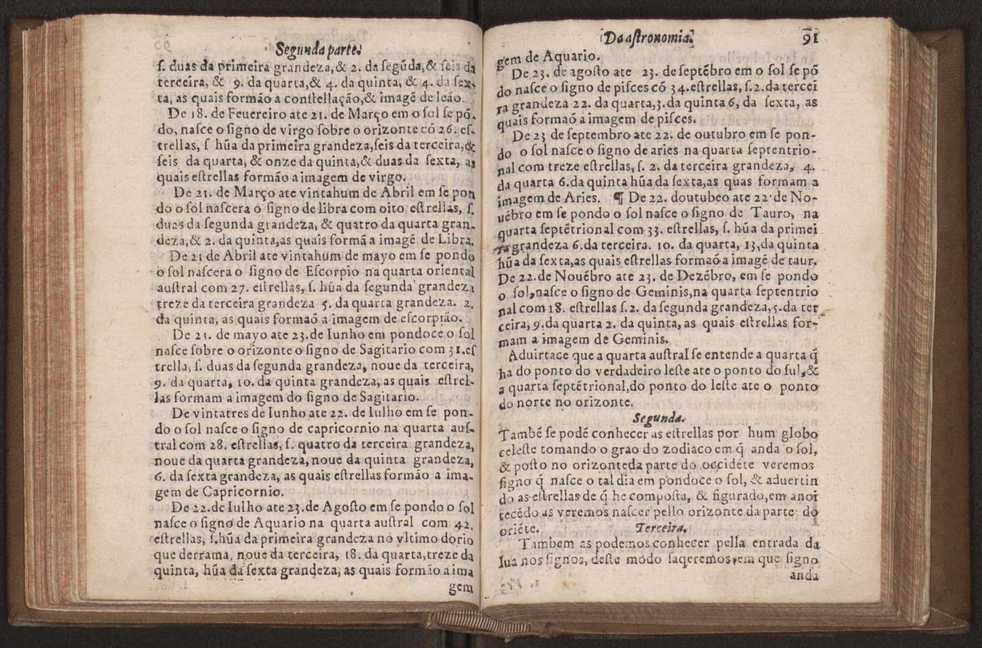 Segunda parte.
ſ. duas da primeira grandeza,& 2. da ſegũda,& ſeis da
terceira, & 9. da quarta,& 4. da quinta, & 4. da ſex-
ta, as quais formão a conſtellação,& imagẽ de leão.
De 18. de Feuereiro ate 21. de Março em o ſol ſe põ-
do, naſce o ſigno de virgo ſobre o orizonte cõ 26. eſ-
trellas, ſ hũa da primeira grandeza,ſeis da terceira,&
ſeis da quarta, & onze da quinta,& duas da ſexta, as
quais eſtrellas formão a imagem de virgo.
De 21. de Março ate vintahum de Abril em ſe pon
do o ſol naſcera o ſigno de libra com oito eſtrellas, ſ.
duas da ſegunda grandeza, & quatro da quarta gran-
deza,& 2. da quinta,as quais formã a imagẽ de Libra.
De 21 de Abril ate vintahum de mayo em ſe pondo
o ſol naſcera o ſigno de Eſcorpio na quarta oriental
auſtral com 27. eſtrellas, ſ. hũa da ſegunda grandeza
treze da terceira grandeza 5. da quarta grandeza. 2.
da quinta, as quais formaõ a imagem de eſcorpião.
De 21. de mayo ate 23.de Iunho em pondoce o ſol
naſce ſobre o orizonte o ſigno de Sagitario com 31.eſ
trella, ſ. duas da ſegunda grandeza, noue da terceira,
9. da quarta, 10. da quinta grandeza, as quais eſtrel-
las formam a imagem do ſigno de Sagitario.
De vintatres de Iunho ate 22. de Iulho em ſe pon-
do o ſol naſce o ſigno de capricornio na quarta auſ-
tral com 28. eſtrellas, ſ. quatro da terceira grandeza,
noue da quarta grandeza, noue da quinta grandeza,
6. da ſexta grandeza, as quais eſtrellas formão a ima-
gem de Capricornio.
De 22.de Iulho ate 23.de Agoſto em ſe pondo o ſol
naſce o ſigno de Aquario na quarta auſtral com 42.
eſtrellas, ſ.hũa da primeira grandeza no vltimo dorio
que derrama, noue da terceira, 18. da quarta,treze da
quinta, hũa da ſexta grandeza, as quais formão a ima
gem
Da aſtronomia. 91
gem de Aquario.
De 23. de agoſto ate 23. de ſeptẽbro em o ſol ſe põ
do naſce o ſigno de piſces cõ 34.eſtrellas, ſ.2.da tercei
ra grandeza 22. da quarta,3.da quinta 6, da ſexta, as
quais formaõ a imagem de piſces.
De 23 de ſeptembro ate 22. de outubro em ſe pon-
do o ſol naſce o ſigno de aries na quarta ſeptentrio-
nal com treze eſtrellas, ſ. 2. da terceira grandeza, 4.
da quarta 6.da quinta hũa da ſexta,as quas formam a
imagem de Aries. ¶ De 22. doutubro ate 22 de No-
uẽbro em ſe pondo o ſol naſce o ſigno de Tauro, na
quarta ſeptẽtrional com 33. eſtrellas, ſ. hũa da primei
ra grandeza 6.da terceira. 10. da quarta, 13,da quinta
hũa da ſexta,as quais eſtrellas formaõ a imagẽ de taur.
De 22.de Nouẽbro ate 23. de Dezẽbro, em ſe pondo
o ſol,naſce o ſigno de Geminis,na quarta ſeptentrio
nal com 18. eſtrellas ſ.2. da ſegunda grandeza,5.da ter
ceira, 9.da quarta 2. da quinta, as quais eſtrellas for-
mam a imagem de Geminis.
Aduirtace que a quarta auſtral ſe entende a quarta q̃
ha do ponto do verdadeiro leſte ate o ponto do ſul,&
a quarta ſeptẽtrional,do ponto do leſte ate o ponto
do norte no orizonte.
Segunda.
Tambẽ ſe podẽ conhecer as eſtrellas por hum globo
celeſte tomando o grao do zodiaco em q̃ anda o ſol,
& poſto no orizonte da parte do occidẽte veremos
ſigno q̃ naſce o tal dia em pondoce o ſol, & aduertin
do as eſtrellas de q̃ he compoſta, & figurado,em anoi
tecẽdo as veremos naſcer pello orizonte da parte do
oriẽte. Terceira.
Tambem as podemos conhecer pella entrada da
lua nos ſignos, deſte modo ſaqeremos,em que ſigno
anda